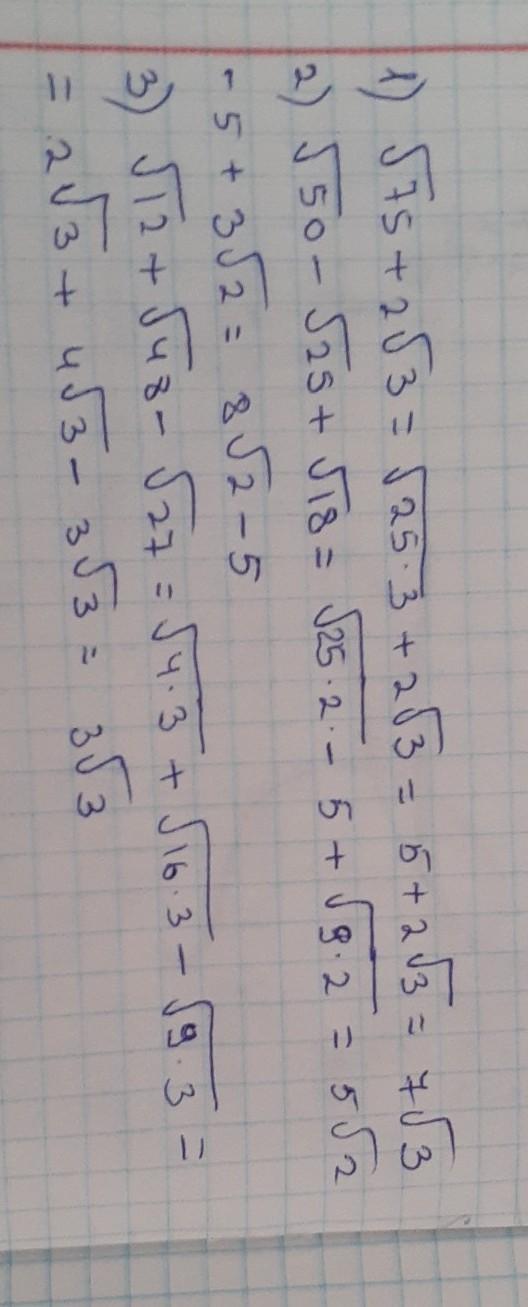 1) √75 + 2√3 = √25·3 + 2√3 = 5 + 2√3 = 7√3
2) √50 - √25 + √18 = √25·2 - 5 + √9·2 = 5√2
- 5 + 3√2 = 8√2 - 5
3) √12 + √48 - √27 = √4·3 + √16·3 - √9·3 =
= 2√3 + 4√3 - 3√3 = 3√3